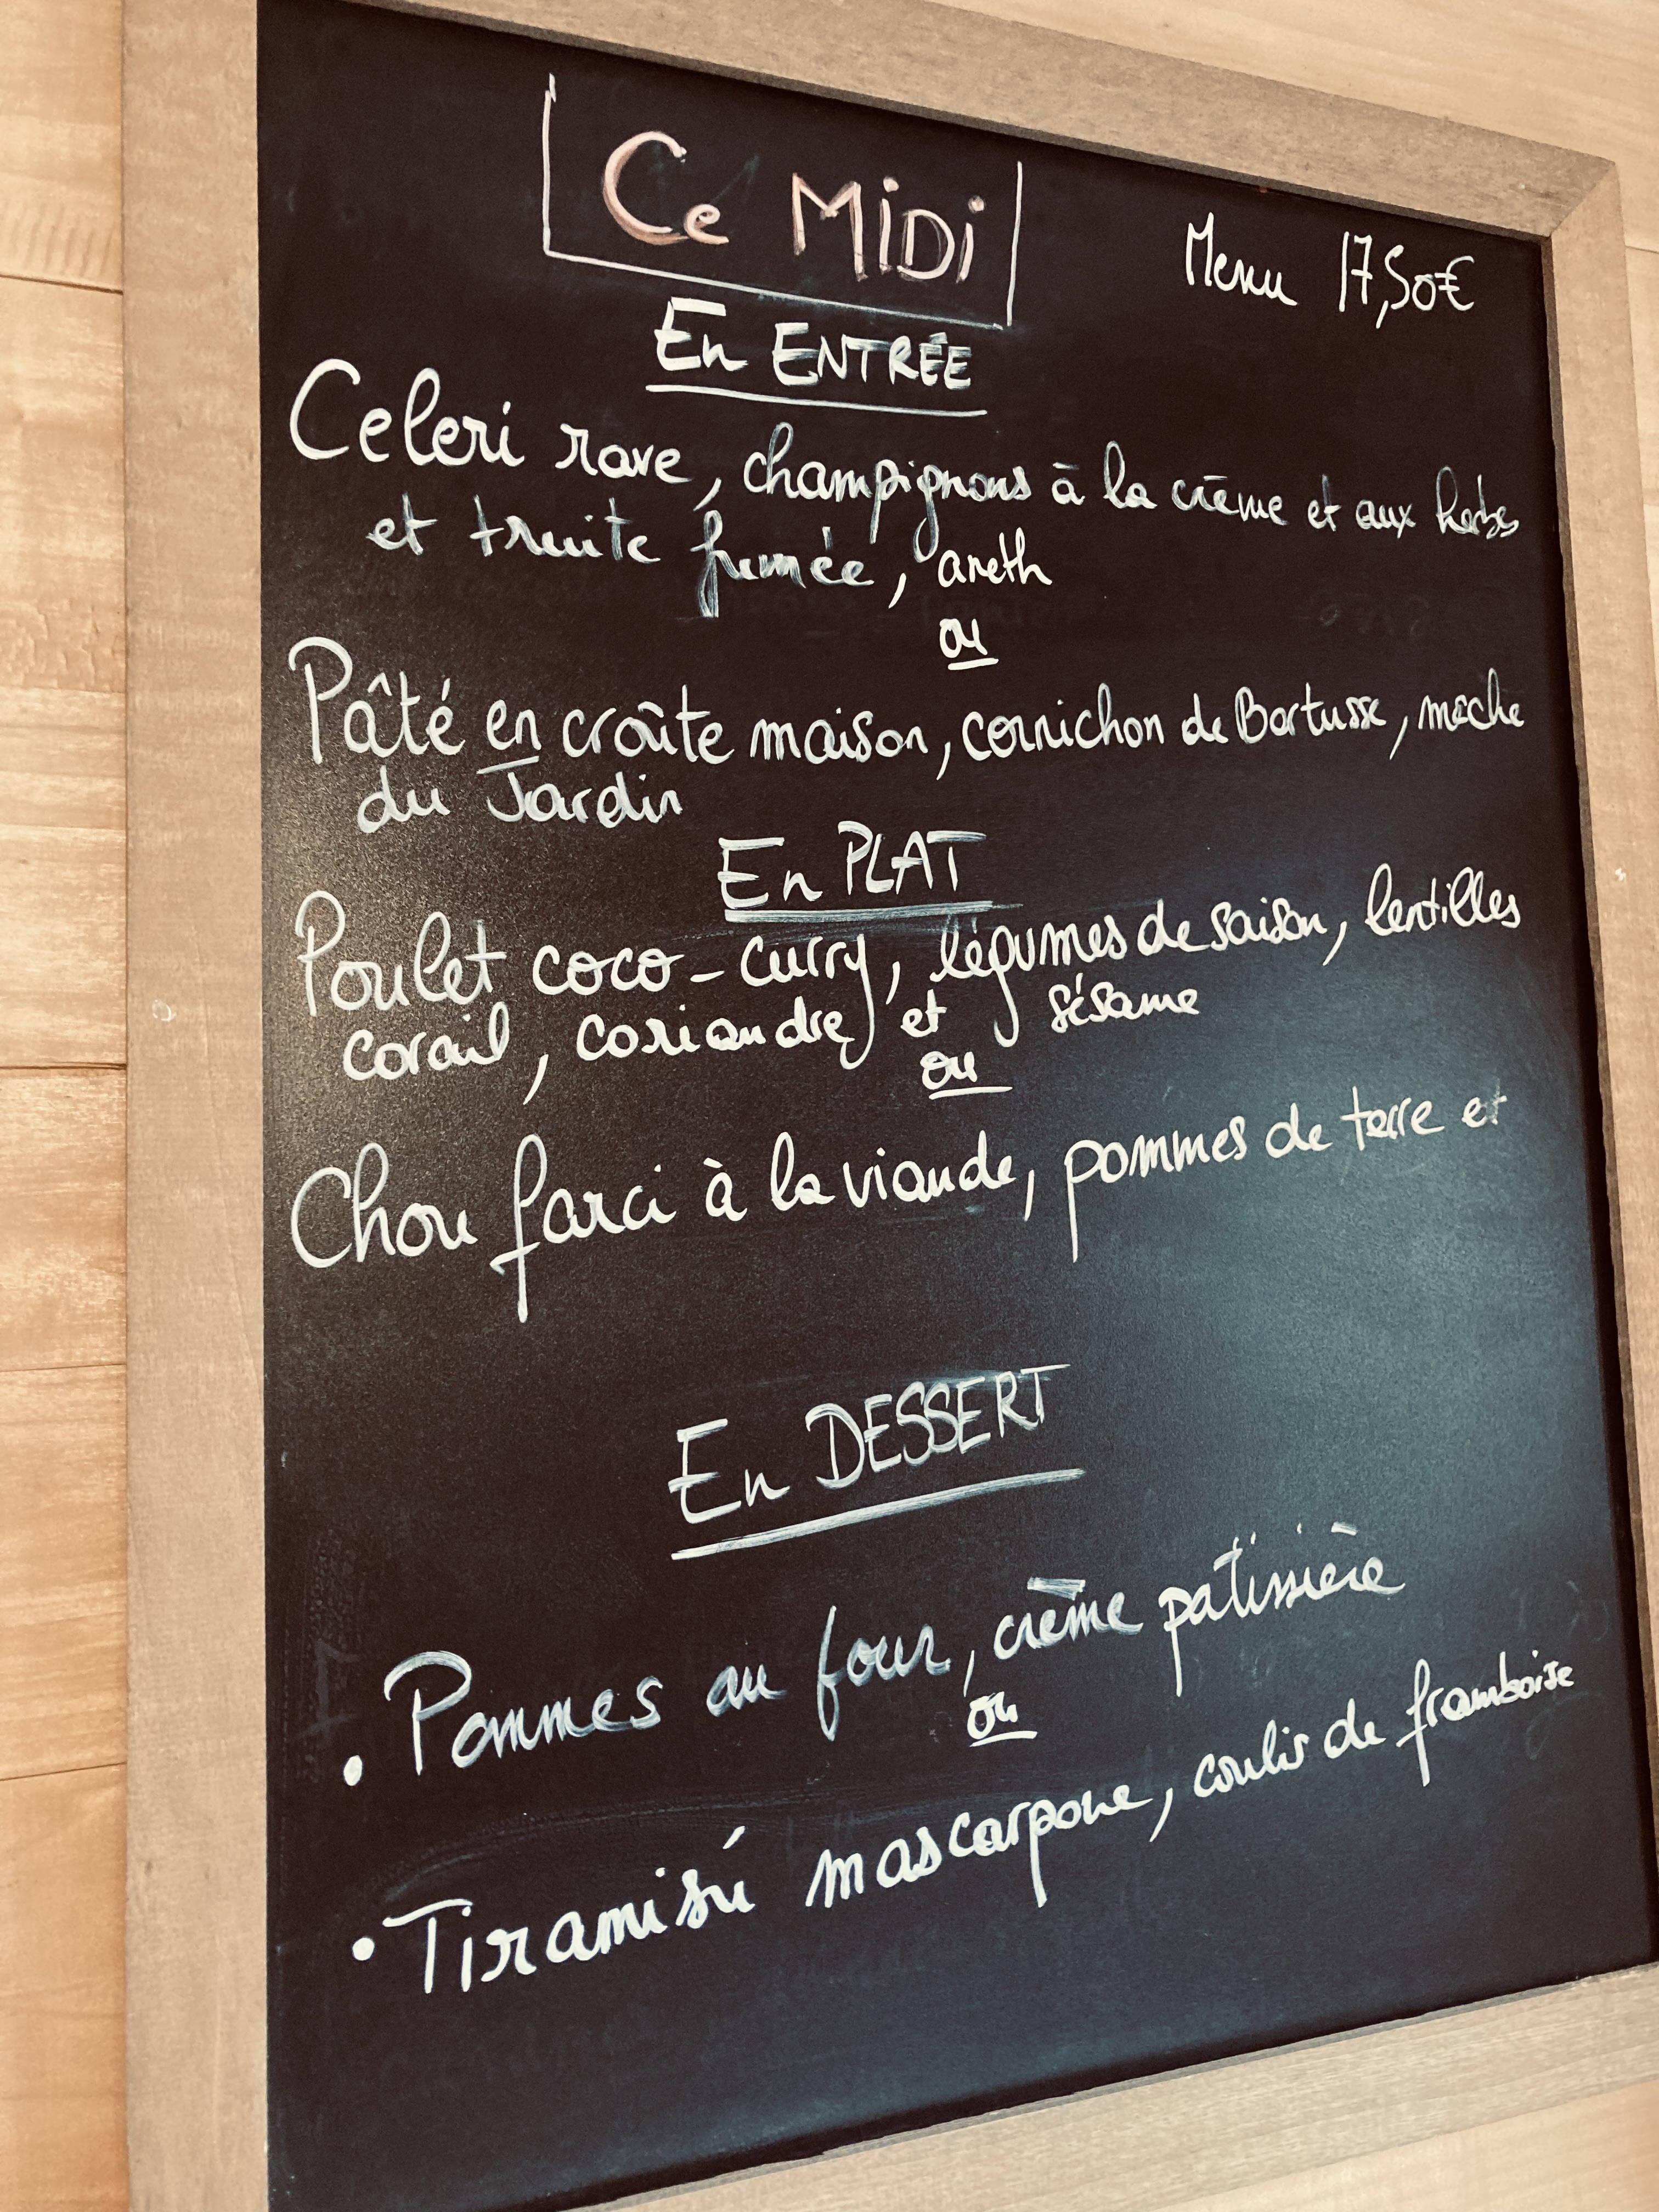 Ce MiDi
Menu 17,50€
En ENTRÉE
Celeri rave, champignons à la crème et aux herbes
et truite fumée, aneth
ou
Pâté en croûte maison, cornichon de Bartusse, mâche
du Jardin
En PLAT
Poulet coco-curry, légumes de saison, lentilles
corail, coriandre et sésame
ou
Chou farci à la viande, pommes de terre et
En DESSERT
• Pommes au four, crème patissière
ou
• Tiramisú mascarpone, coulis de framboise